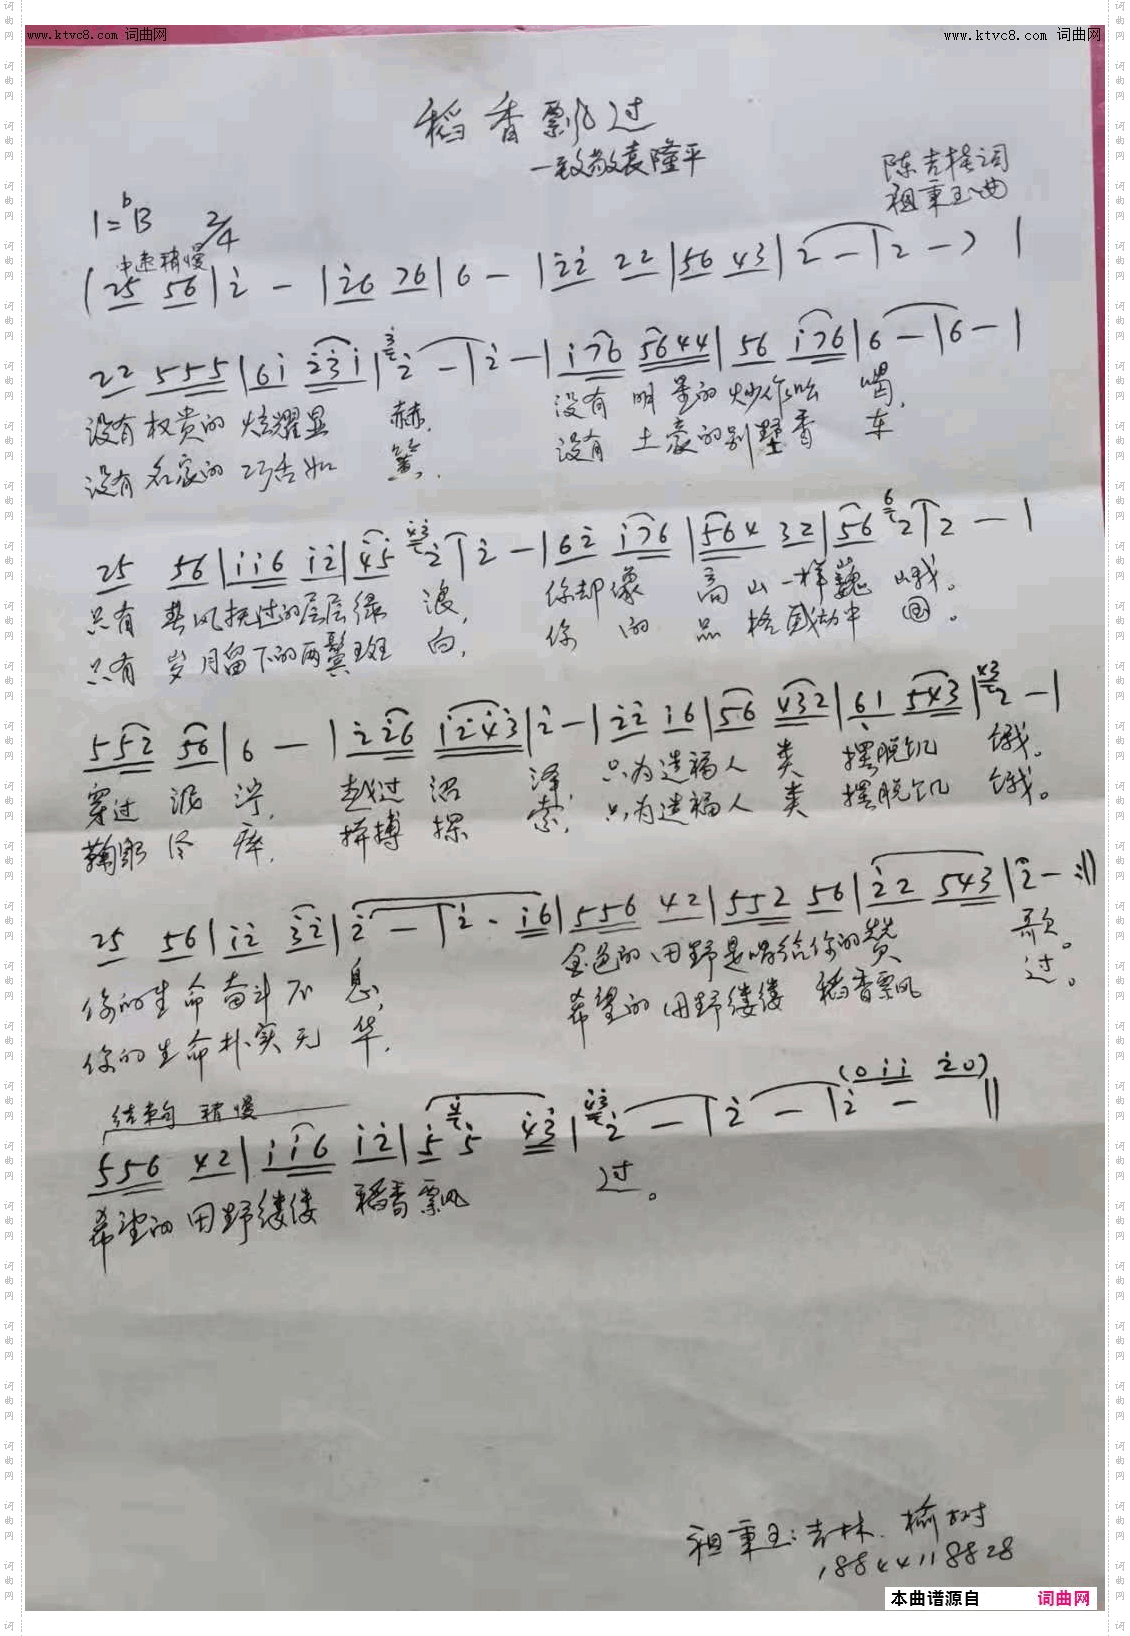 www.ktvc8.com 词曲网
www.ktvc8.com 词曲网
稻香飘过
—致敬袁隆平
陈吉楼词
祖秉玉曲
1=bB 2/4
中速稍慢
(25 56|i - |i6 76|6 - |22 22|56 43|2 - |2 - )|
22 555|6i i23i|2 - |2 - |i76 5644|56 i76|6 - |6 - |
没有权贵的炫耀显赫, 没有明星的炒作吆喝,
没有名家的巧舌如簧, 没有土豪的别墅香车
25 56|ii6 i2|45 2|2 - |62 i76|564 32|56 2|2 - |
只有 春风抚过的层层绿浪, 你却像 高山一样巍峨。
只有 岁月留下的两鬓斑白, 你的品格感动中国。
552 56|6 - |226 i243|2 - |22 i6|56 432|61 543|2 - |
穿过泥泞, 越过沼泽, 只为造福人类 摆脱饥饿。
鞠躬尽瘁, 拼搏探索, 只为造福人类 摆脱饥饿。
25 56|i2 32|2 - |2 - i6|556 42|552 56|22 543|2 - :||
你的生命奋斗不息, 金色的田野是唱给你的赞歌。
你的生命朴实无华, 希望的田野缕缕 稻香飘过。
结束句 稍慢
(0ii 20)
556 42|ii6 i2|5 5 43|2 - |2 - |2 - ||
希望的田野缕缕 稻香飘过。
祖秉玉:吉林.榆树
18844118828
本曲谱源自 词曲网